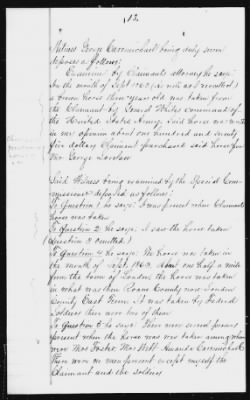 12
Witness George Carmichael being duly sworn
deposes as follows:
Examined by Claimants attorney he says
In the month of Sept 1863 (as well as I recollect)
a brown horse three years old was taken from
the Claimant by United States command of
the United States Army. Said horse was worth
in my opinion about one hundred and seventy
five dollars Claimant purchased said horse from
Mr George
Said Witness being examined by the Special Com-
missioner deposed as follows:
To Question 1 he says: I was present when Claimants
horse was taken
To Question 2: he says: I saw the horse taken
(Question 3 omitted)
To Question 4 he says: The horse was taken in
the month of Sept. 1863 about one half a mile
from the town of Loudon, the horse was taken
in what was then Roane County now Loudon
County East Tenn. It was taken by Federal
Soldiers there were two of them
To Question 5 he says: There were several persons
present when the horse was taken among whom
were Mrs Foster, Mrs Webb Amanda Carmichael
There were no men present except myself the
Claimant and the soldiers